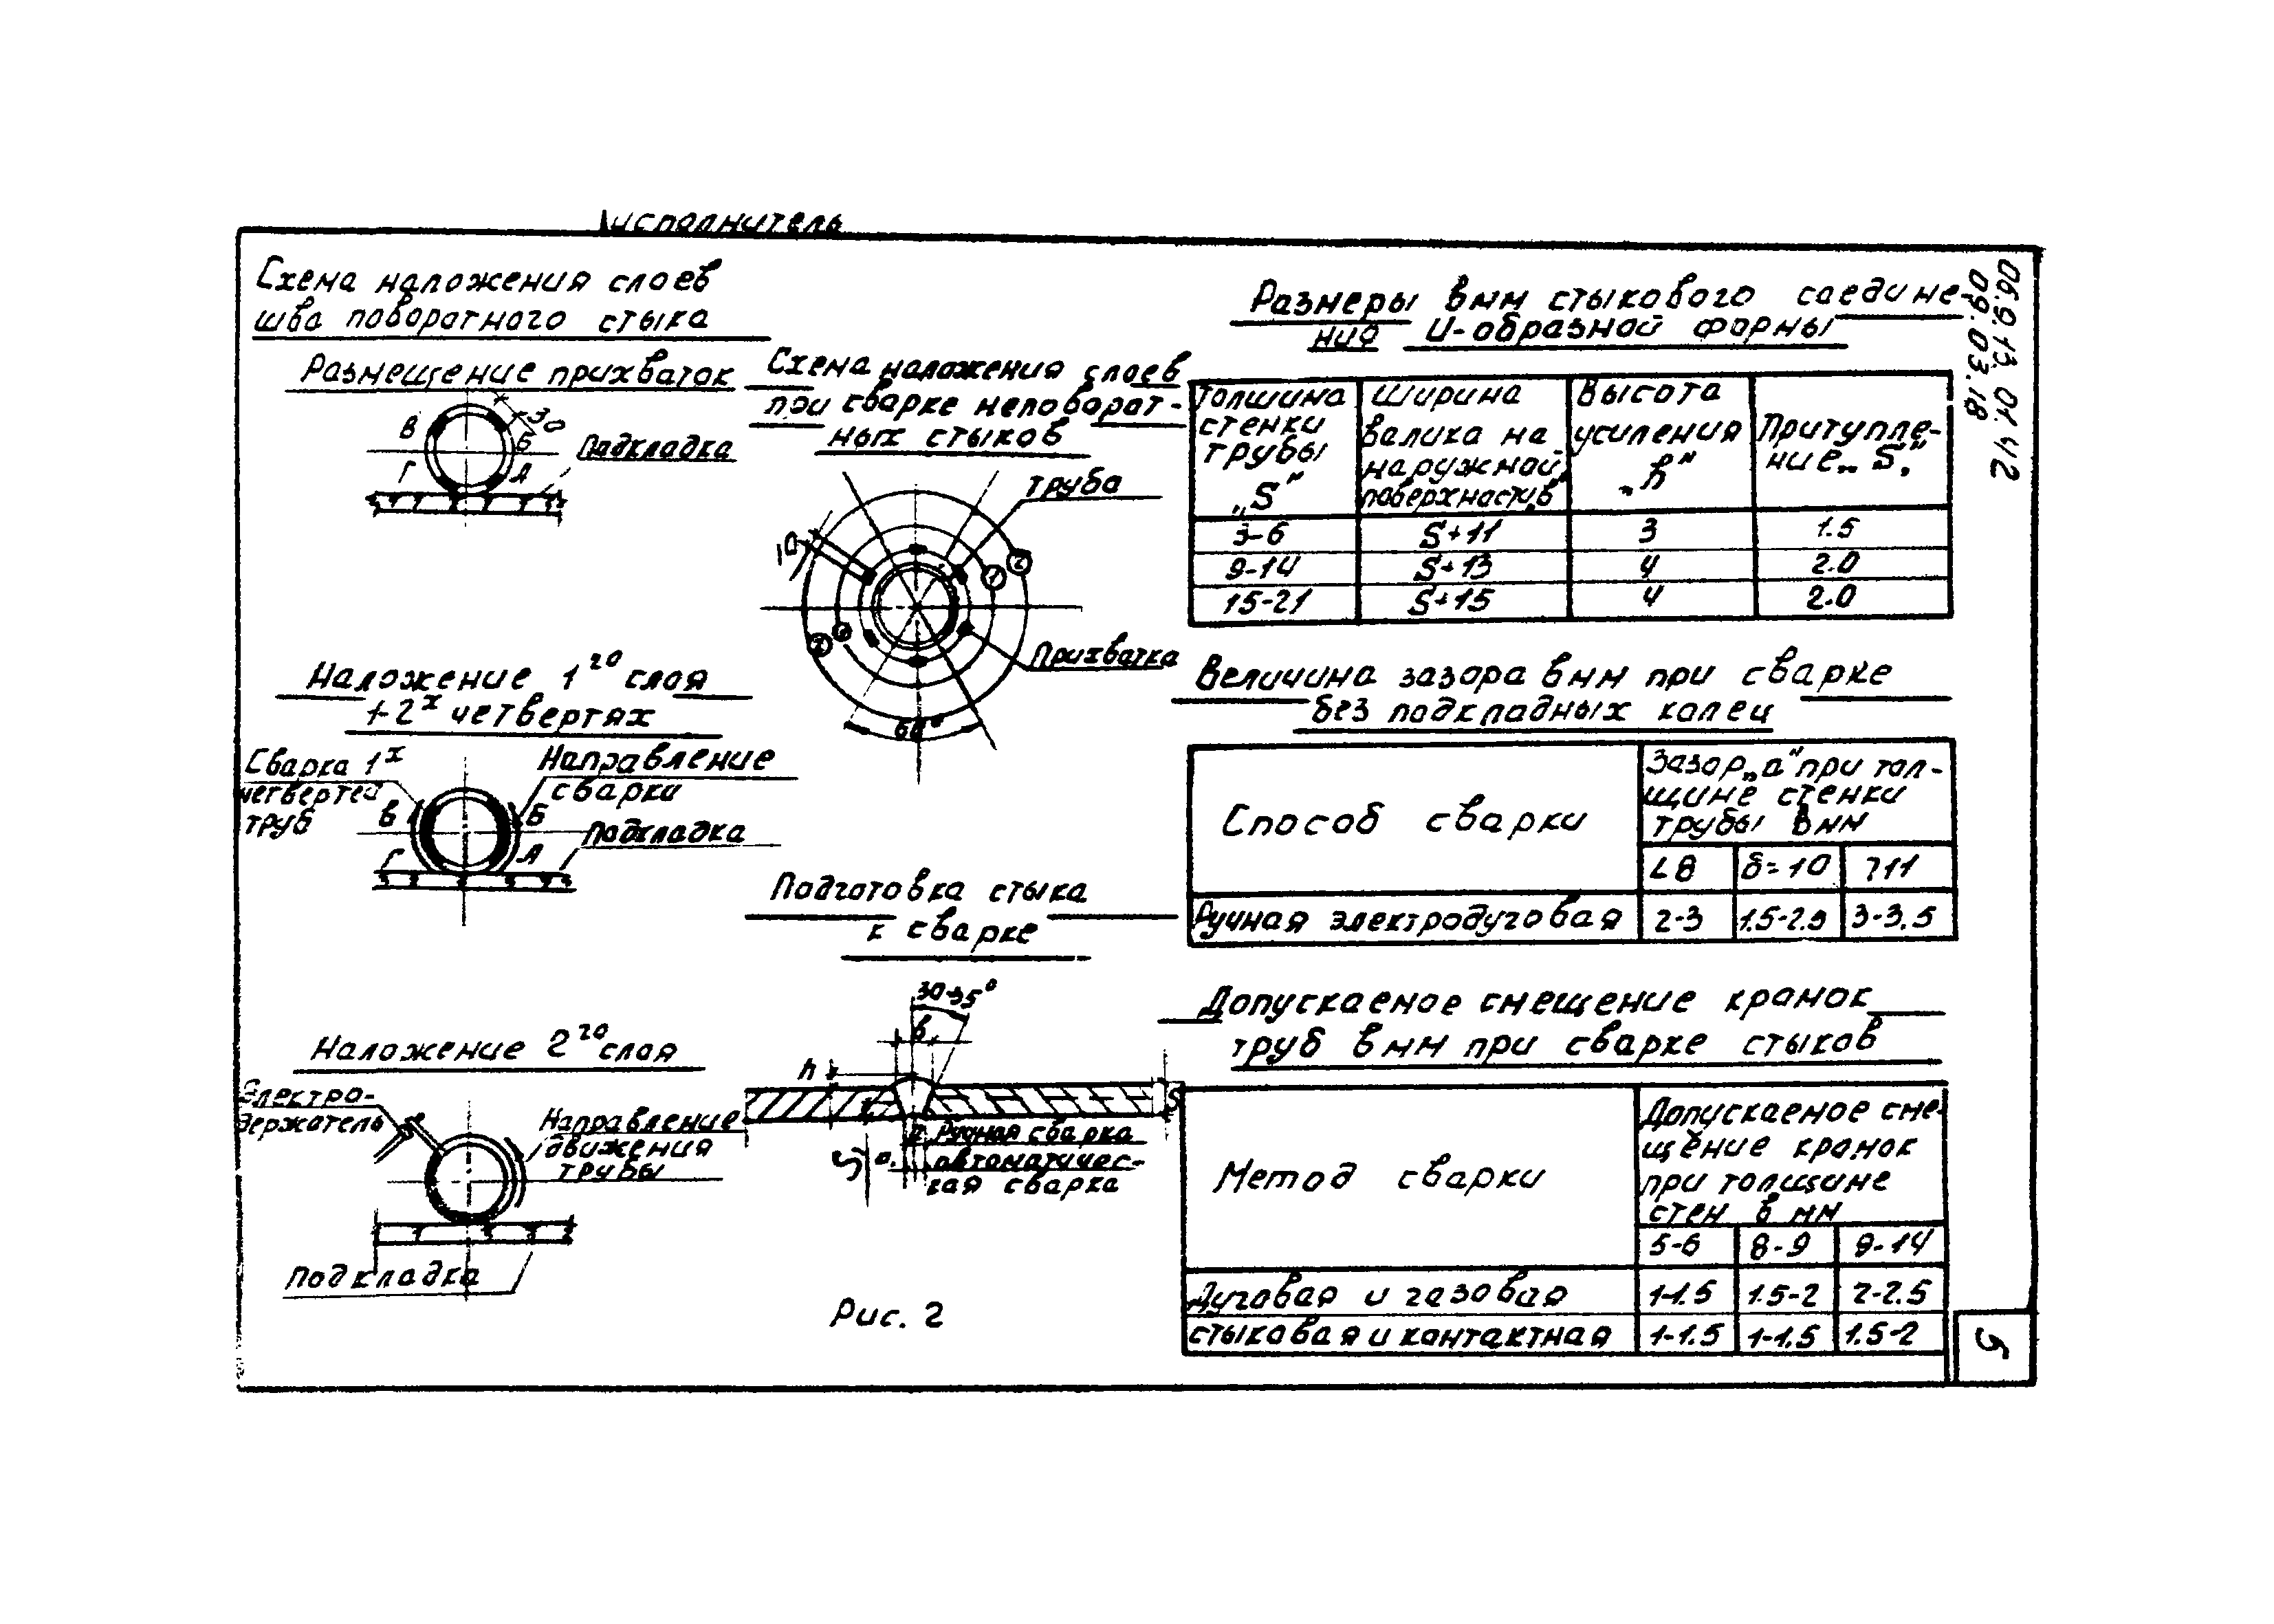 исполнитель
Схема наложения слоев
шва поворотного стыка
Размещение прихваток
В
30
Б
Подкладка
Г
А
Наложение 1го слоя
+2х четвертях
Сварка 1х
четвертей
труб
Направление
сварки
В
Б
Подкладка
Г
А
Наложение 2го слоя
Электро-
держатель
Направление
движения
трубы
Подкладка
Схема наложения слоев
при сварке неповорот-
ных стыков
труба
10
2
1
Прихватка
60°
Подготовка стыка
к сварке
30-35°
в
h
S
Ручная сварка
S
а
автоматичес-
кая сварка
Рис. 2
Размеры в мм стыкового соедине-
ния U-образной формы
Толщина
стенки
трубы
„S“
Ширина
валика на
наружной
поверхности „в“
Высота
усиления
„h“
Притупле-
ние „S“
3-6 S+11 3 1.5
9-14 S+13 4 2.0
15-21 S+15 4 2.0
Величина зазора в мм при сварке
без подкладных колец
Способ сварки
Зазор „а“ при тол-
щине стенки
трубы в мм
<8 δ=10 >11
Ручная электродуговая 2-3 1.5-2.5 3-3.5
Допускаемое смещение кромок
труб в мм при сварке стыков
Метод сварки
Допускаемое сме-
щение кромок
при толщине
стен в мм
5-6 8-9 9-14
Дуговая и газовая 1-1.5 1.5-2 2-2.5
стыковая и контактная 1-1.5 1-1.5 1.5-2
06.9.13.01.42
09.03.18
5